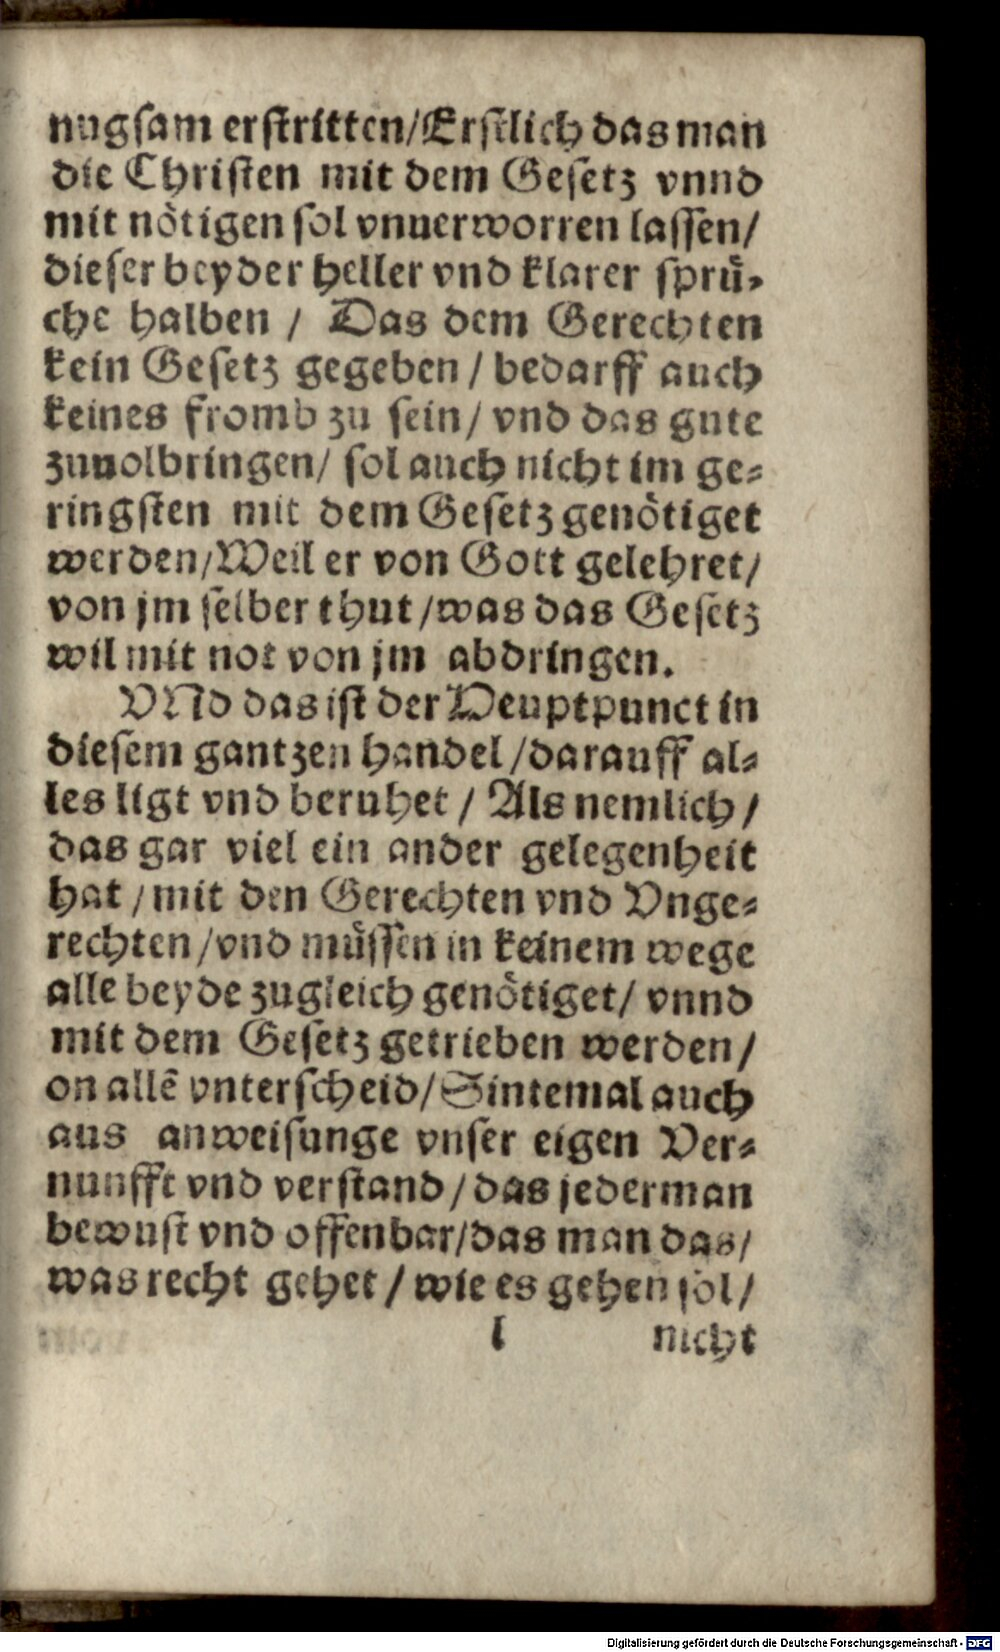 nugsam erstritten/Erstlich das man
die Christen mit dem Gesetz vnnd
mit nötigen sol vnuerworren lassen/
dieser beyder heller vnd klarer sprü-
che halben / Das dem Gerechten
kein Gesetz gegeben / bedarff auch
keines fromb zu sein / vnd das gute
zuuolbringen/ sol auch nicht im ge-
ringsten mit dem Gesetz genötiget
werden/Weil er von Gott gelehret/
von jm selber thut /was das Gesetz
wil mit not von jm abdringen.
VNd das ist der Heuptpunct in
diesem gantzen handel /darauff al-
les ligt vnd beruhet / Als nemlich /
das gar viel ein ander gelegenheit
hat / mit den Gerechten vnd Vnge-
rechten /vnd müssen in keinem wege
alle beyde zugleich genötiget/ vnnd
mit dem Gesetz getrieben werden /
on allē vnterscheid/Sintemal auch
aus anweisunge vnser eigen Ver-
nunfft vnd verstand / das jederman
bewust vnd offenbar/das man das/
was recht gehet / wie es gehen sol /
l nicht
Digitalisierung gefördert durch die Deutsche Forschungsgemeinschaft - DFG